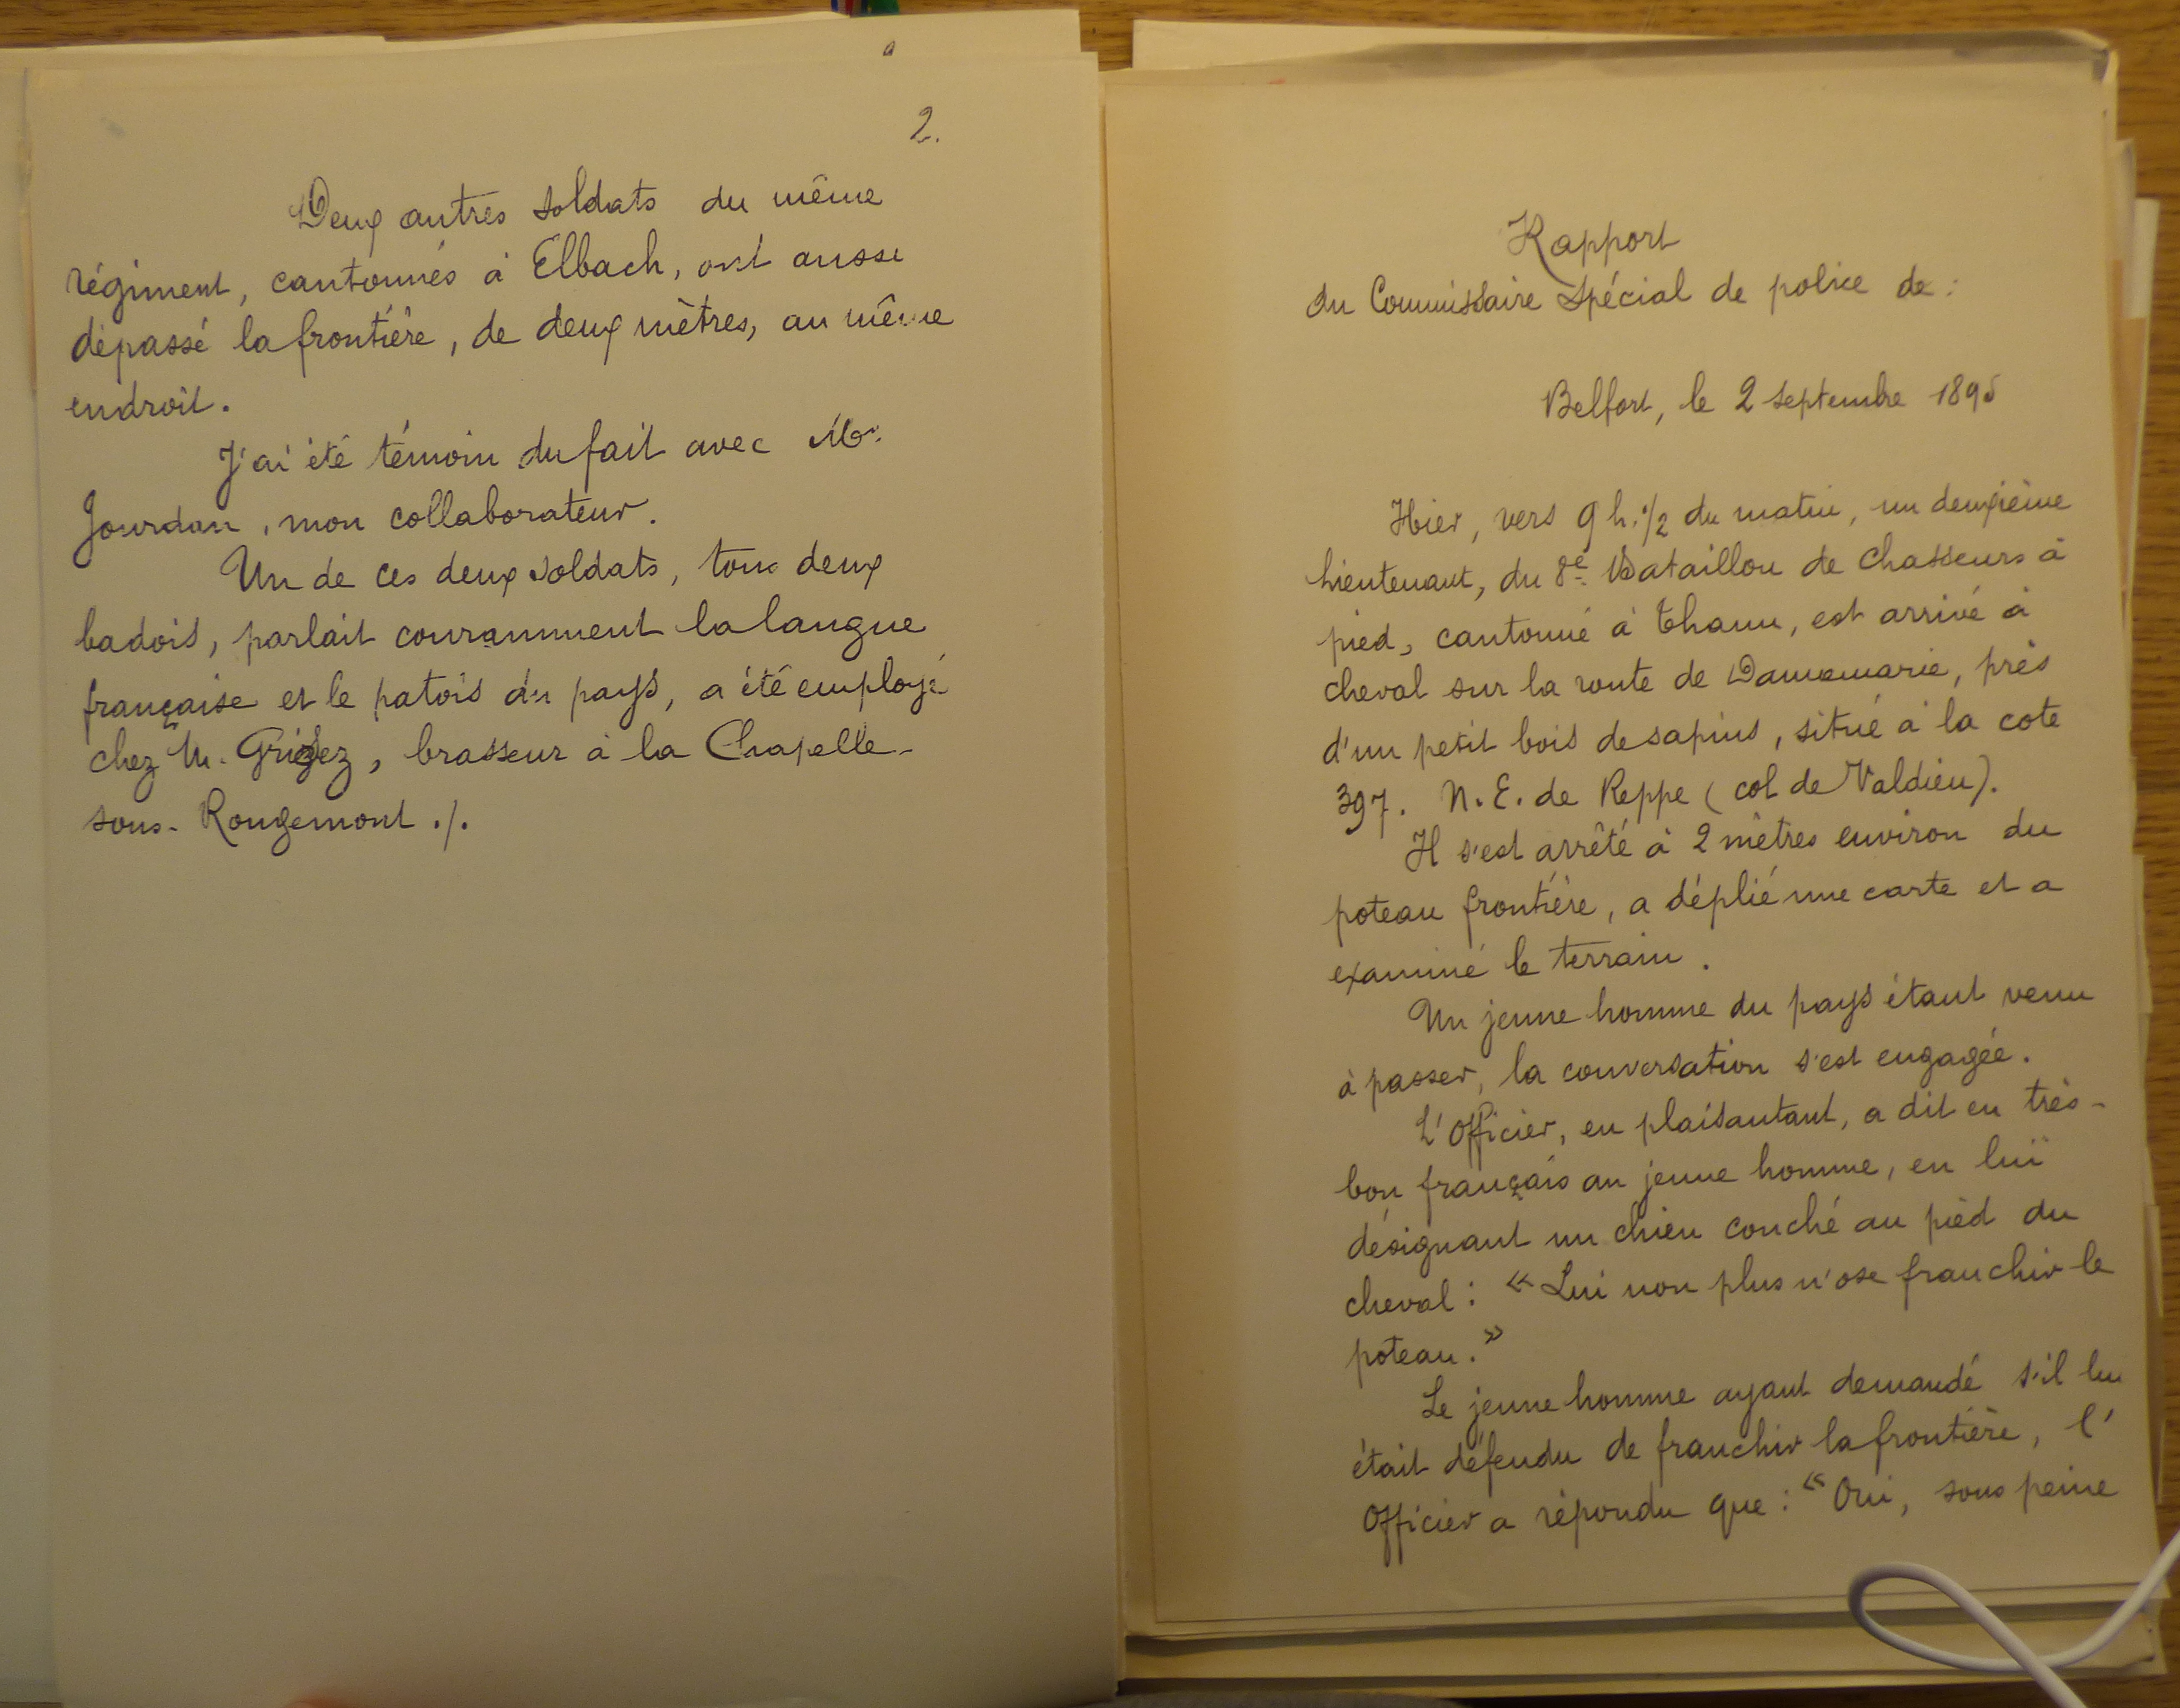 2.
Deux autres soldats du même
régiment, cantonnés à Elbach, ont aussi
dépassé la frontière, de deux mètres, au même
endroit.
J'ai été témoin du fait avec Mr.
Jourdan, mon collaborateur.
Un de ces deux soldats, tous deux
badois, parlait couramment la langue
française et le patois du pays, a été employé
chez M. Grisez, brasseur à la Chapelle-
sous-Rougemont ./.
Rapport
du Commissaire Spécial de police de :
Belfort, le 2 septembre 1895
Hier, vers 9 h. 1/2 du matin, un deuxième
lieutenant, du 8e Bataillon de Chasseurs à
pied, cantonné à Thann, est arrivé à
cheval sur la route de Dannemarie, près
d'un petit bois de sapins, situé à la cote
397. N.E. de Reppe (col de Valdieu).
Il s'est arrêté à 2 mètres environ du
poteau frontière, a déplié une carte et a
examiné le terrain.
Un jeune homme du pays étant venu
à passer, la conversation s'est engagée.
L'Officier, en plaisantant, a dit en très-
bon français au jeune homme, en lui
désignant un chien couché au pied du
cheval : « Lui non plus n'ose franchir le
poteau. »
Le jeune homme ayant demandé s'il lui
était défendu de franchir la frontière, l'
Officier a répondu que : « Oui, sous peine